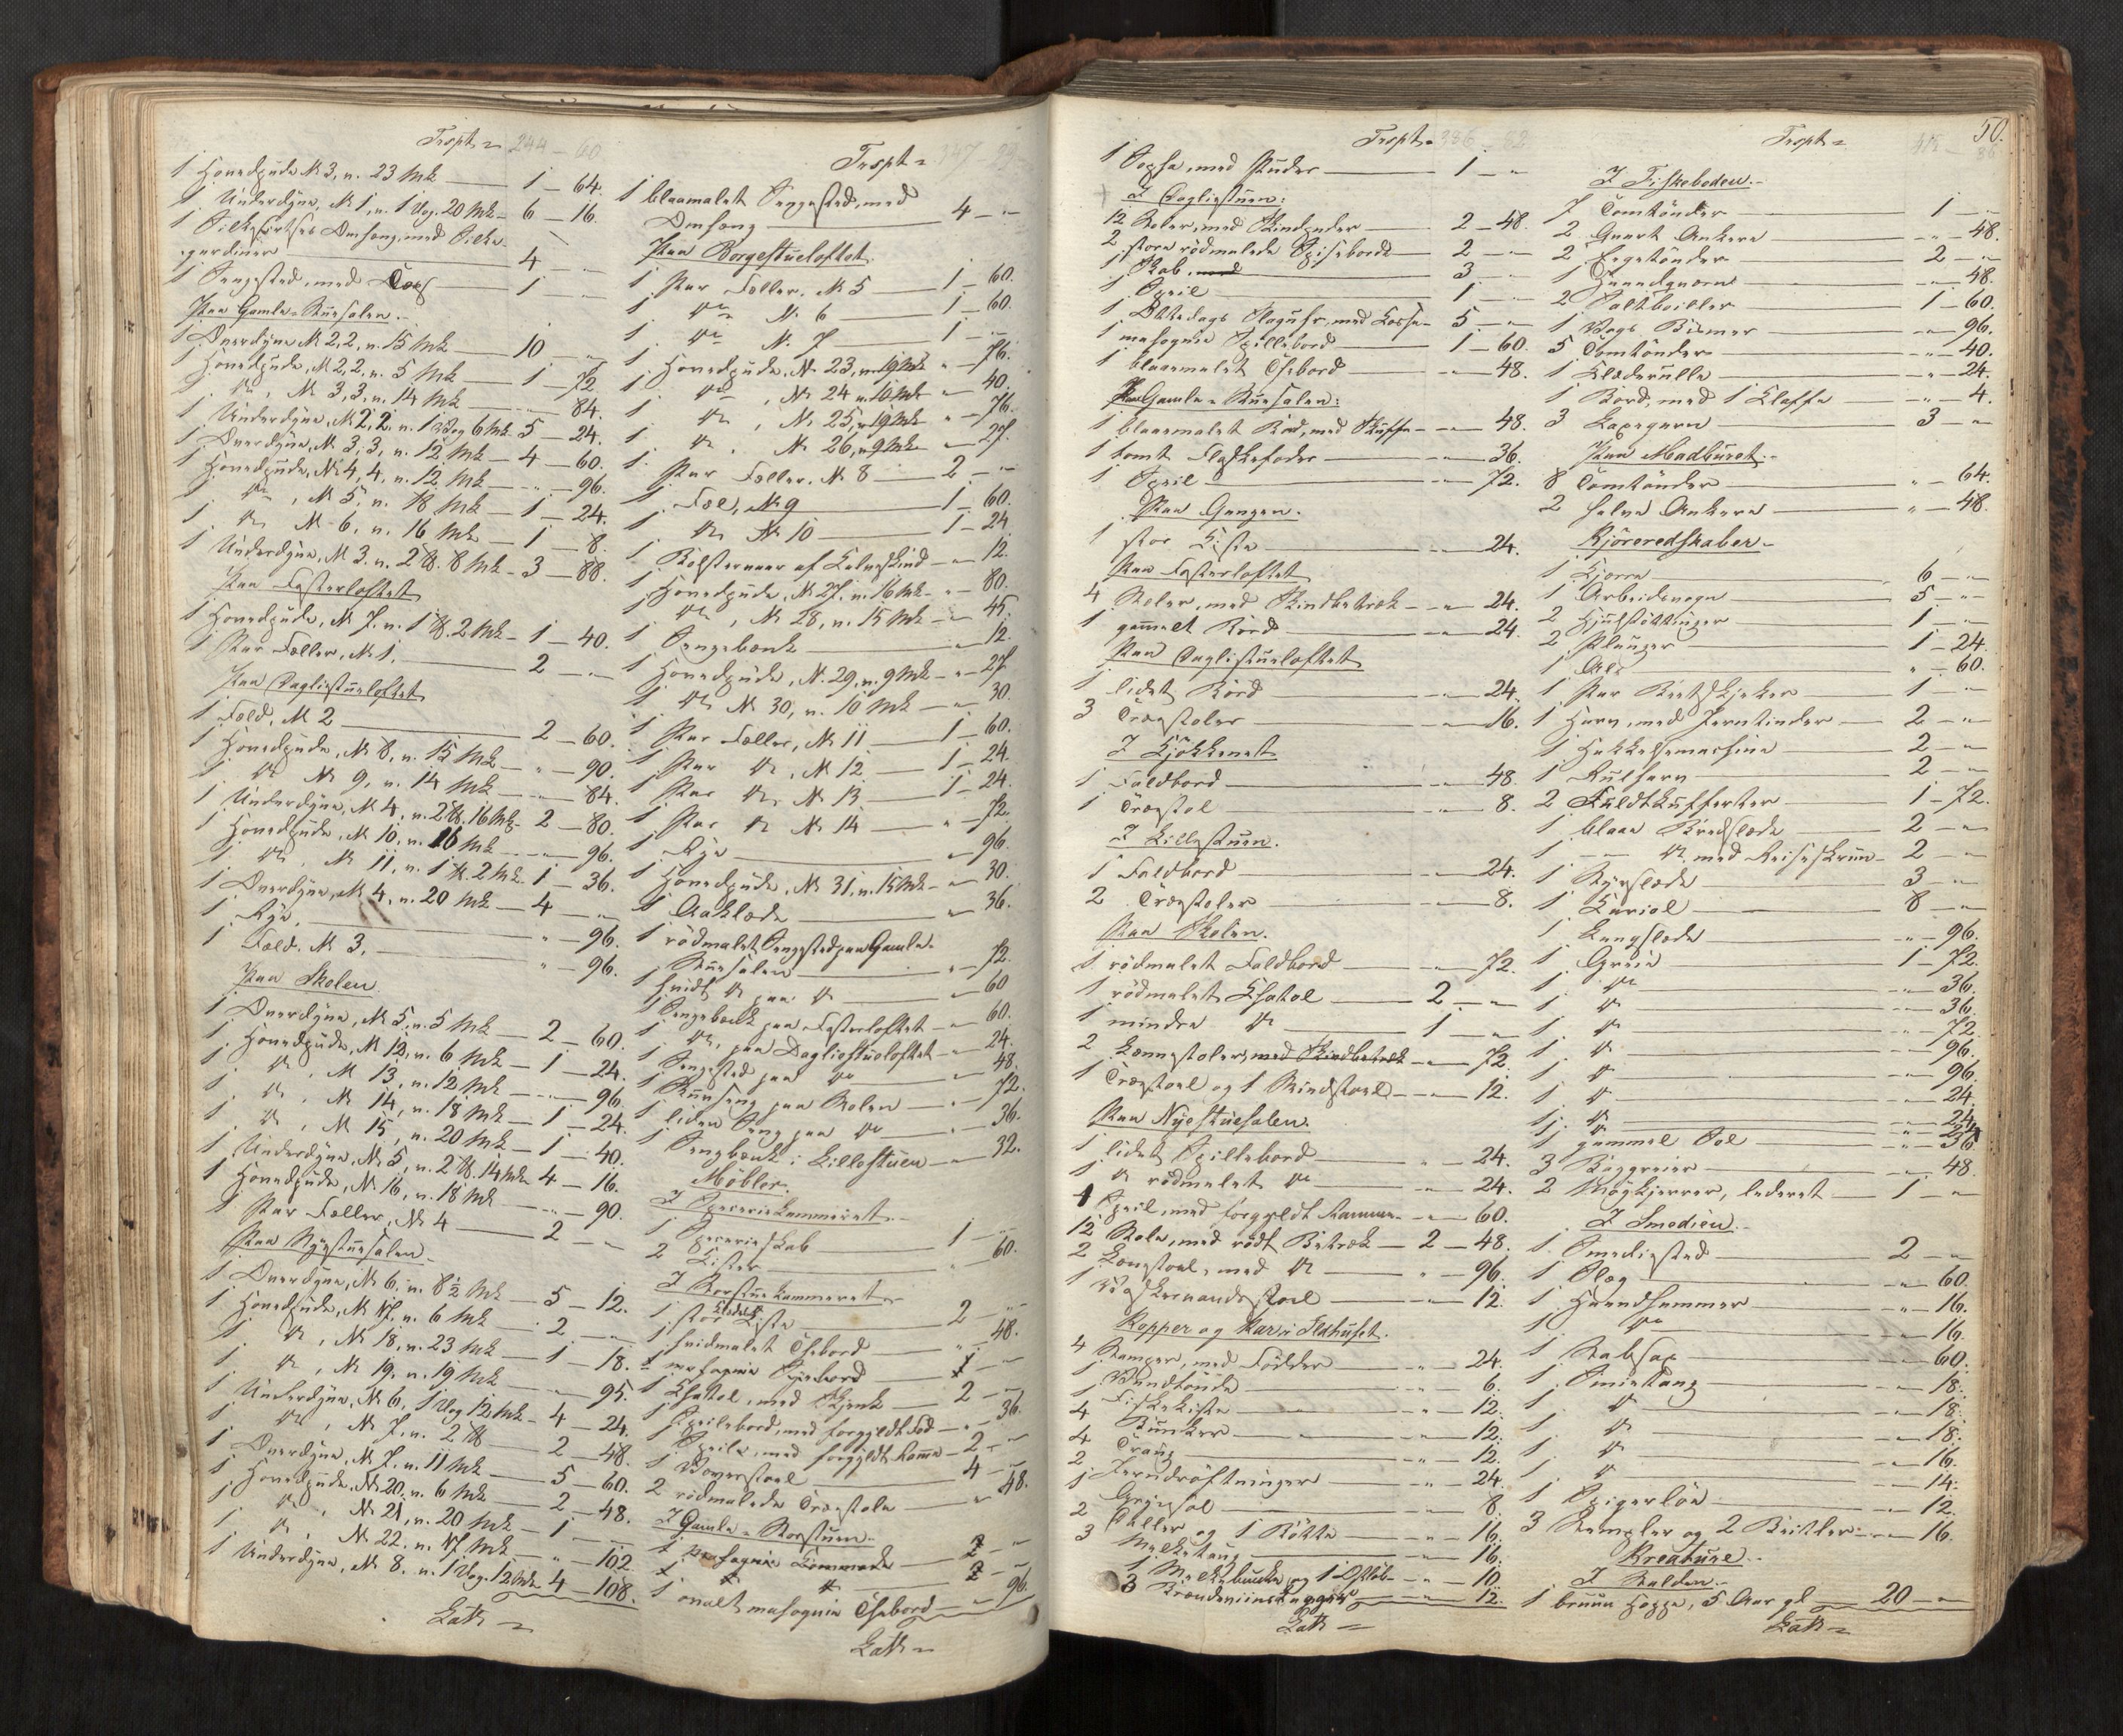 Trspt = 244 - 60
1 Hovedpude № 3, v. 23 Mk — 1 - 64.
1 Underdyne, № 1, v. 1 Vog. 20 Mk — 6 - 16.
1 Silkeskirtses Omhæng, med Silke-
gardiner — 4 - "
1 Sengested, med — 1 - "
Paa Gamle-Stuesalen.
1 Overdyne № 2, 2, v. 15 Mk — 10 - "
1 Hovedpude, № 2, 2, v. 5 Mk — 1 - 72
1 do, № 3, 3, v. 14 Mk — " - 84.
1 Underdyne, № 2, 2, v. 1 Vog 6 Mk — 5 - 24.
1 Overdyne, № 3, 3, v. 12 Mk — 4 - 60.
1 Hovedpude, № 4, 4, v. 12 Mk — " - 96.
1 do, № 5, v. 18 Mk — 1 - 24.
1 do № 6, v. 16 Mk — 1 - 8.
1 Underdyne, № 3. v. 2 ℔. 8 Mk — 3 - 88.
Paa Fasterloftet
1 Hovedpude, № 7. v. 1 ℔. 2 Mk — 1 - 40.
1 Par Feller, № 1. — 2 - "
Paa Dagligstueloftet
1 Feld, № 2 — 2 - 60.
1 Hovedpude, № 8, v. 15 Mk — " - 90.
1 do № 9, v. 14 Mk — " - 84.
1 Underdyne, № 4, v. 2 ℔. 16 Mk — 2 - 80.
1 Hovedpude, № 10, v. 16 Mk — " - 96.
1 do, № 11, v. 1 ℔. 2 Mk — 1 - 36.
1 Overdyne, № 4, v. 20 Mk — 4 - "
1 Rye — " - 96.
1 Feld. № 3. — " - 96.
Paa Skolen.
1 Overdyne, № 5, v. 5 Mk — 2 - 60.
1 Hovedpude, № 12, v. 6 Mk — 1 - 24.
1 do, № 13, v. 12 Mk — " - 96.
1 do, № 14, v. 18 Mk — 1 - 24.
1 do, № 15, v. 20 Mk — 1 - 40.
1 Underdyne, № 5, v. 2 ℔ 14 Mk 4 - 16.
1 Hovedpude, № 16, v. 18 Mk — " - 90.
1 Par Feller, № 4 — 2 - "
Paa Nyestuesalen
1 Overdyne, № 6, v. 8½ Mk — 5 - 12.
1 Hovedpude, № 17. v. 6 Mk — 2 - "
1 do, № 18, v. 23 Mk — 1 - 18.
1 do, № 19, v. 19 Mk — " - 95.
1 Underdyne, № 6, 1 Vog 12 Mk — 4 - 24.
1 do, № 7. v. 2 ℔ — 2 - 48.
1 Overdyne, № 7. v. 11 Mk — 5 - 60.
1 Hovedpude, № 20, v. 6 Mk — 2 - 48.
1 do, № 21, v. 20 Mk — 1 - "
1 do, № 22. v. 17 Mk — " - 102.
1 Underdyne, № 8. v. 1 Vog. 12 Mk 4 - 108.
Lats =
Trspt = 347 - 29
1 blaamalet Sengested, med
Omhæng — 4 - "
Paa Borgestueloftet.
1 Par Feller, № 5 — 1 - 60.
1 do № 6 — 1 - 60.
1 do № 7 — 1 - "
1 Hovedpude, № 23, v. 19 Mk " - 76.
1 do, № 24 v. 10 Mk " - 40.
1 do, № 25, v. 19 Mk " - 76.
1 do, № 26, v. 9 Mk " - 27.
1 Par Feller, № 8 — 2 - "
1 Fel, № 9 — 1 - 60.
1 do № 10 — 1 - 24
1 Bolstervaar af Kalveskind — " 12.
1 Hovedpude, № 27. v. 16 Mk — " - 80.
1 do, № 28, v. 15 Mk — " 45.
1 Sengebænk — " 12.
1 Hovedpude, № 29, v. 9 Mk — " - 27
1 do № 30, v. 10 Mk — " 30.
1 Par Feller, № 11 — 1 - 60.
1 Par do, № 12. — 1 - 24.
1 Par do, № 13 — 1 - 24.
1 Par do № 14 — " - 72.
1 Rye — " 96.
1 Hovedpude, № 31, v. 15 Mk — " 30.
1 Aaklæde — " 36.
1 rödmalet Sengested paa Gamle-
Stuesalen — " - 72.
1 hvidt do paa do — " 60
1 Sengebænk paa Fasterloftet — " 60.
1 do, paa Dagligstueloftet — " 24.
1 Sengested paa do — " 48.
1 paa Skolen — " - 72.
1 liden Seng paa do — " - 36.
1 Sengbænk i Lillestuen — " 32.
Möbler.
I Speceriekammeret
1 Specerieskab — 1 - "
2 Kister — " - 60.
I Storstuekammeret
1 stor Klædes Kiste — 2 - "
1 hvidmalet Thebord — " - 48.
1 mahognie Syebord — 1 - "
1 Chatol, med Skjenk — 2 - "
1 Speilebord, med forgyldt Fod — " - 36.
1 Speile, med forgyldt Ramme — 2 - "
1 — 4 - "
2 rödmalede Træstole — " 48.
I Gamle-Storstuen
1 mahognie Commode — 2 - "
1 do do — 2 - "
1 ovalt mahognie Thebord — " 96.
Lats =
Trspt = 386 - 62
1 Sopha, med Puder — 1 - "
I Dagligstuen:
12 Stoler, med Skindpuder — 2 - 48.
2 store rödmalede Spiseborde — 2 - "
1 Skab — 3 - "
1 Speil — 1 - "
1 Ottedags Slaguhr, med Kasse — 5 - "
1 mahognie Spillebord — 1 - 60.
1 blaamalet Thebord — " 48.
Paa Gamle-Stuesalen:
1 blaamalet Bord, med Skuffe — " 48.
1 tomt Flaskefoder — " 36.
1 Speil — " 72.
Paa Gangen.
1 stor Kiste — " 24.
Paa Fasterloftet
4 Stoler, med Skindbetræk — " 24.
1 gammelt Bord — " 24.
Paa Dagligstueloftet
1 lidet Bord — " 24.
3 Træstoler — " 16.
I Kjökkenet
1 Faldbord — " 48.
1 Træstol — " 8.
I Lillestuen.
1 Faldbord — " 24.
2 Træstoler — " 8.
Paa Skolen.
1 rödmalet Faldbord — " 72.
1 rödmalet Chatol — 2 - "
1 mindre do — 1 - "
2 Lænestoler, med Skindbetræk — " 72.
1 Træstoel og 1 Skindstoel — " 12.
Paa Nyestuesalen.
1 lidet Spillebord — " 24.
1 do rödmalet do — " 24.
1 Speil, med forgyldt Ramme — " 60.
12 Stole, med rödt Betræk — 2 - 48.
2 Lænestoel, med do — " 96.
1 — " 12.
Kopper og Kar i Ildhuset.
4 Stamper, med — " 24.
1 Vandtönde — " 6.
1 Fiskekiste — " 12.
4 — " 12.
4 Traug — " 12.
2 — " 24.
1 — " 8.
2 og 1 Bötte — " 16.
3 — " 16.
1 og 1 — " 10
3 Brændeviinstagger — " 12.
Lats =
50.
Trspt =
I Fiskeboden.
7 Tomtönder — 1 - "
2 Qvart Ankere — " - 48.
2 — 2 - "
1 Haandqværn — " 48.
2 — 1 - 60.
1 Vogs Bismer — " 96.
5 Tomtönder — " - 40.
1 Klæderulle — " 24.
1 Bord, med 1 Klaffe — " 4.
3 Laxegarn — 3 - "
Paa Madburet.
8 Tomtönder — " - 64.
2 halve Ankere — " - 48.
Kjöreredskaber.
1 Kjerre — 6 - "
1 Arbeidsvogn — 5 - "
2 — 1 - "
2 Plouger — 1 - 24.
1 Al — " - 60.
1 Par — 1 - "
1 Harv, med Jerntinder — 2 - "
1 Hakkelsemaskine — 2 - "
1 Rulharv — 2 - "
2 — 1 - 72.
1 blaae Bredslæde — 2 - "
1 — do med Reiseskrin — 2 - "
1 — 3 - "
1 Kariol — 8 - "
1 Langslæde — " - 96.
1 Greie — 1 - 72.
1 do — " - 36.
1 do — " 36.
1 do — " - 72
1 do — " - 96.
1 do — " 96.
1 do — " - 24.
1 do — " - 24.
1 gammel — " - 36.
3 — " - 48.
2 Mögkjerrer, læderet — 1 - "
I Smedien.
1 Smedisted — 2 - "
1 — " - 60.
1 Haandhammer — " - 16.
1 do — " - 16.
1 — " - 60.
1 Smietang — " - 18.
1 do — " - 18.
1 do — " - 18.
1 do — " - 16.
1 do — " - 14.
1 Spigerlöe — " - 12.
3 Stempler og 2 — " - 16.
Kreature.
I Stalden.
1 bruun Hoppe, 5 Aar gl. — 20 - "
Lats =